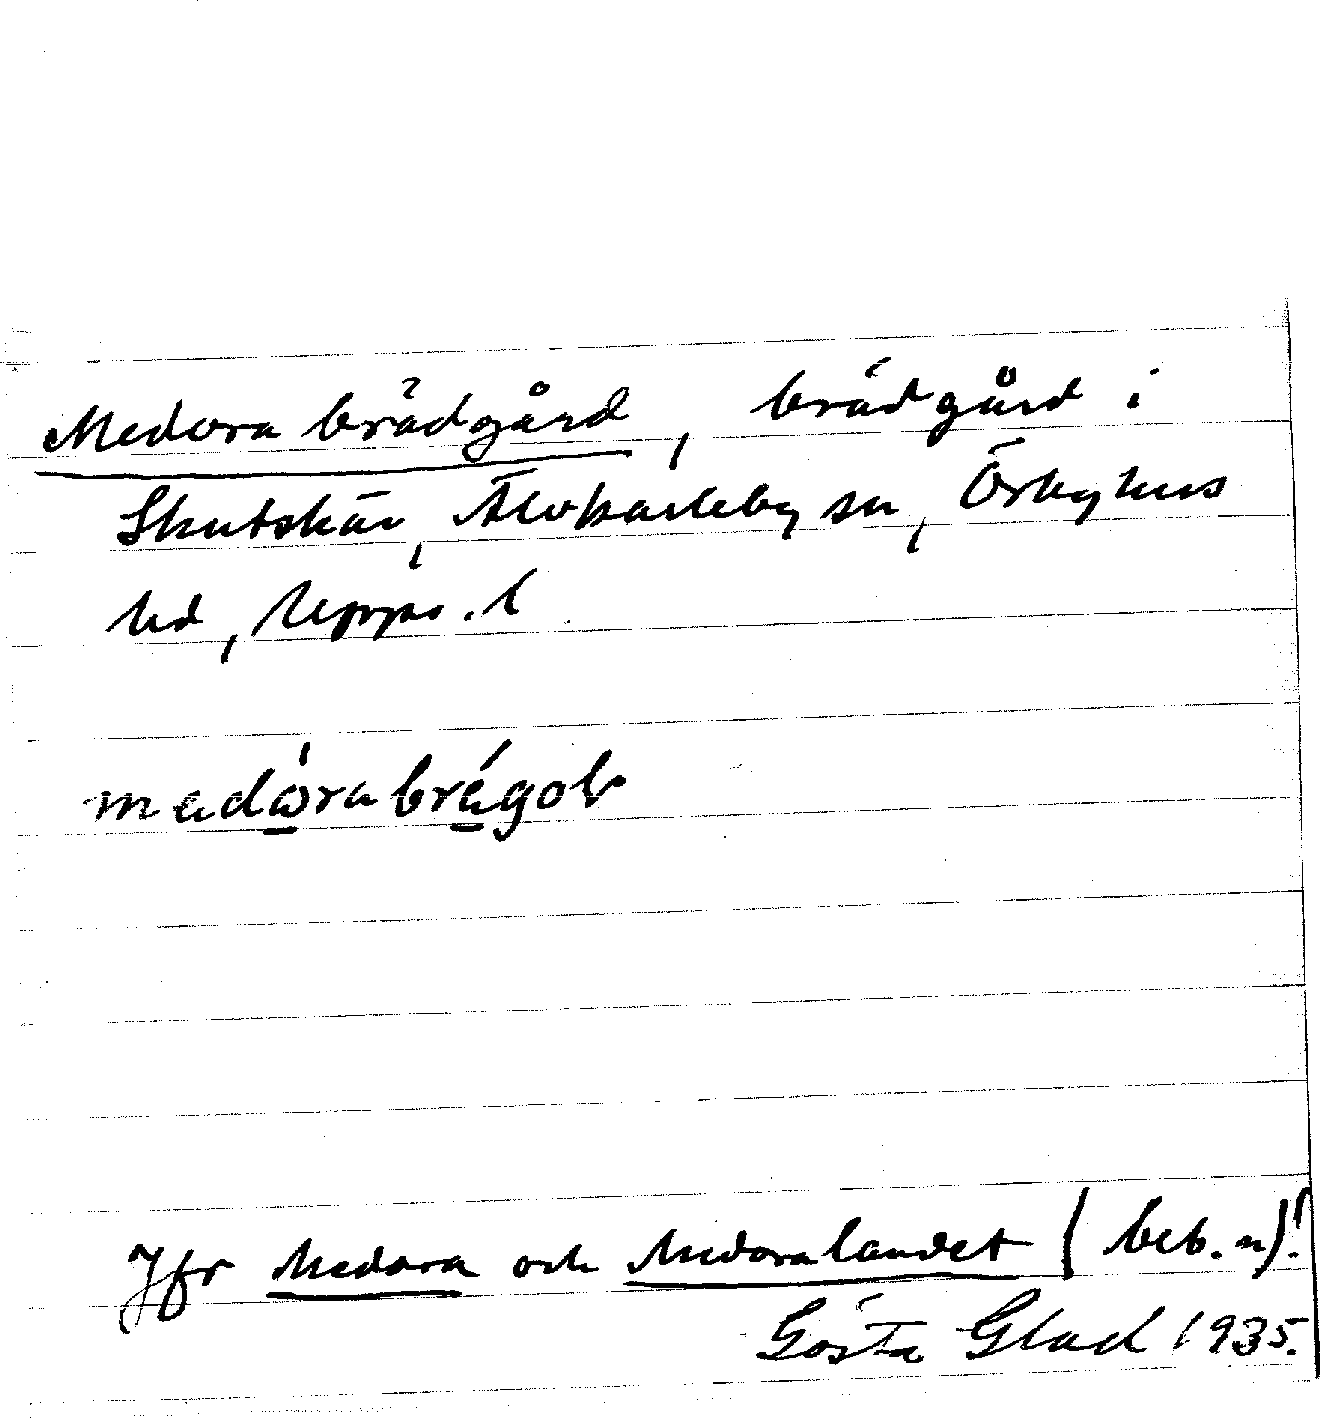 Medora brädgård, brädgård i
Skutskär, Älvkarleby sn, Örbyhus
hd, Upps. l
medòrabrǽgoḷ
Jfr Medora och Medoralandet (beb.n)!
Gösta Glad 1935.